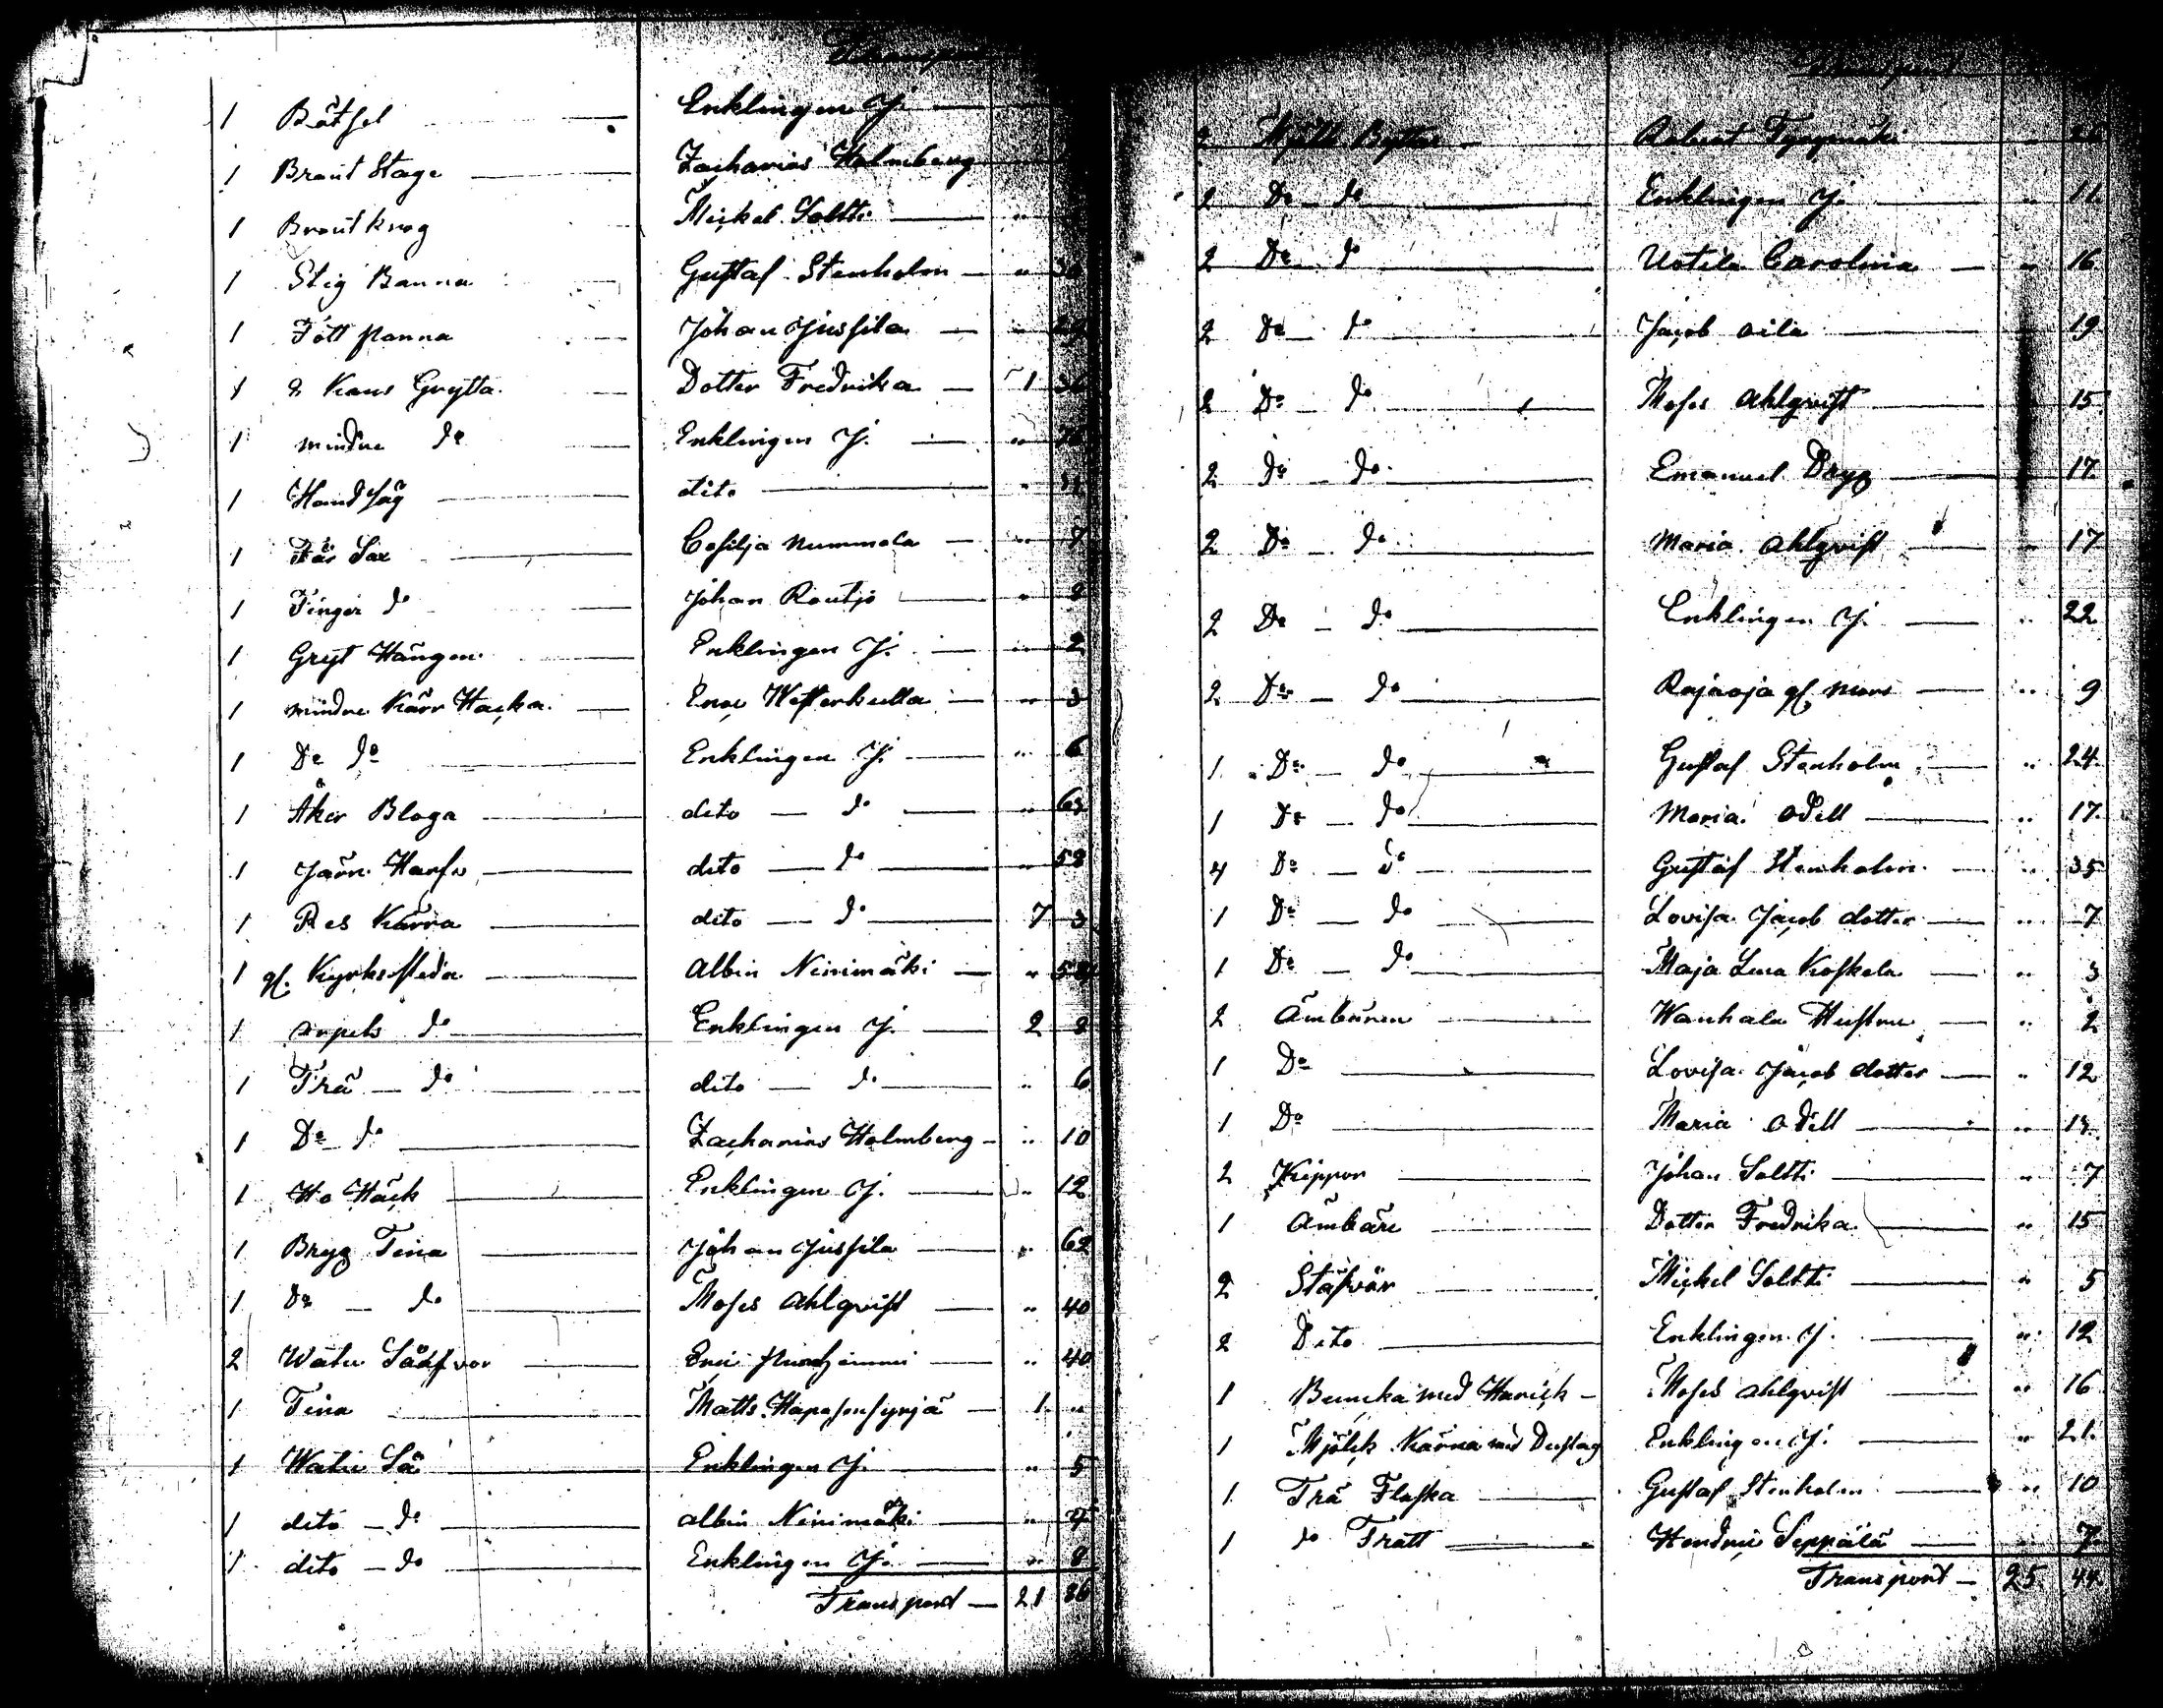 Transport
1 Båtsel — Enklingen J. —
1 Braut Stage — Zacharias Holmberg
1 Braut krog Mickel Soltti — "
1 Stig Banna Gustaf Stenholm — "
1 Fött panna Johan Jussila — "
1 Kans Gryta Dotter Fredrika — 1
1 mindre do Enklingen J. — "
1 Handsåg — dito — "
1 Får Sax — Cesilja Nummela — " 7
1 Finger do — Johan Rautjo — " 8
1 Gryt Hängen — Enklingen J. — " 2
1 mindre Kärr Hacka — Enoc Westerkulla — " 3
1 Do do — Enklingen J. — " 6
1 Åker Bloga — dito — do — "
1 Järn Harfv — dito — do — " 58
1 Res Kärra — dito — do — 7 3
1 gl. Kyrksläda — Albin Ninimäki — "
1 arpels do — Enklingen J. — 2 8
1 Trä — do dito — do — " 6
1 Do do — Zacharias Holmberg — " 10
1 Ho Häck — Enklingen J. — " 12
1 Bryg Tina — Johan Jussila — " 62
1 Do — do — Moses Ahlqvist — " 40
2 Watu — " 40
1 Tina — Matts Haposensyrjä — 1 "
1 Watu Så — Enklingen J. — " 5
1 dito — do — albin Ninimäki — " 4
1 dito — do — Enklingen J. — " 8
Transport — 21 86
Transport
2 Mjölk Byttor — Robert " 26
2 Do — do — Enklingen J. — " 11
2 Do — do — Uotila Carolina — " 16
2 Do — do — Jacob Oila — 19
2 Do — do — Moses Ahlqvist — 15
2 do — do — Emanuel Dryg — 17
2 Do — do — Maria Ahlqvist — " 17
2 Do — do — Enklingen J. — " 22
2 Do — do — Rajaoja gl. mors — " 9
1 Do — do — Gustaf Stenholm — " 24
1 Do — do — Maria Odell — " 17
4 Do — do — Gustaf Stenholm — " 35
1 Do — do — Lovisa Jacob dotter — " 7
1 Do — do — Maja Lena Koskela — " 3
2 Ämbären — Wanhala Hustru — " 2
1 Do — Lovisa Jacob dotter — " 12
1 Do — Maria Odell — "
2 Kippor — Johan Soltti — " 7
1 Ämbäre — Dotter Fredrika — " 15
2 Stäfvar — Mickel Soltti — " 5
2 Dito — Enklingen J. — " 12
1 Buncka med — Moses Ahlqvist — " 16
1 Mjölck Kärna med Enklingen J. — " 21
1 Trä Flaska — Gustaf Stenholm — " 10
1 do Tratt — Seppälä — " 7
Transport — 25 44